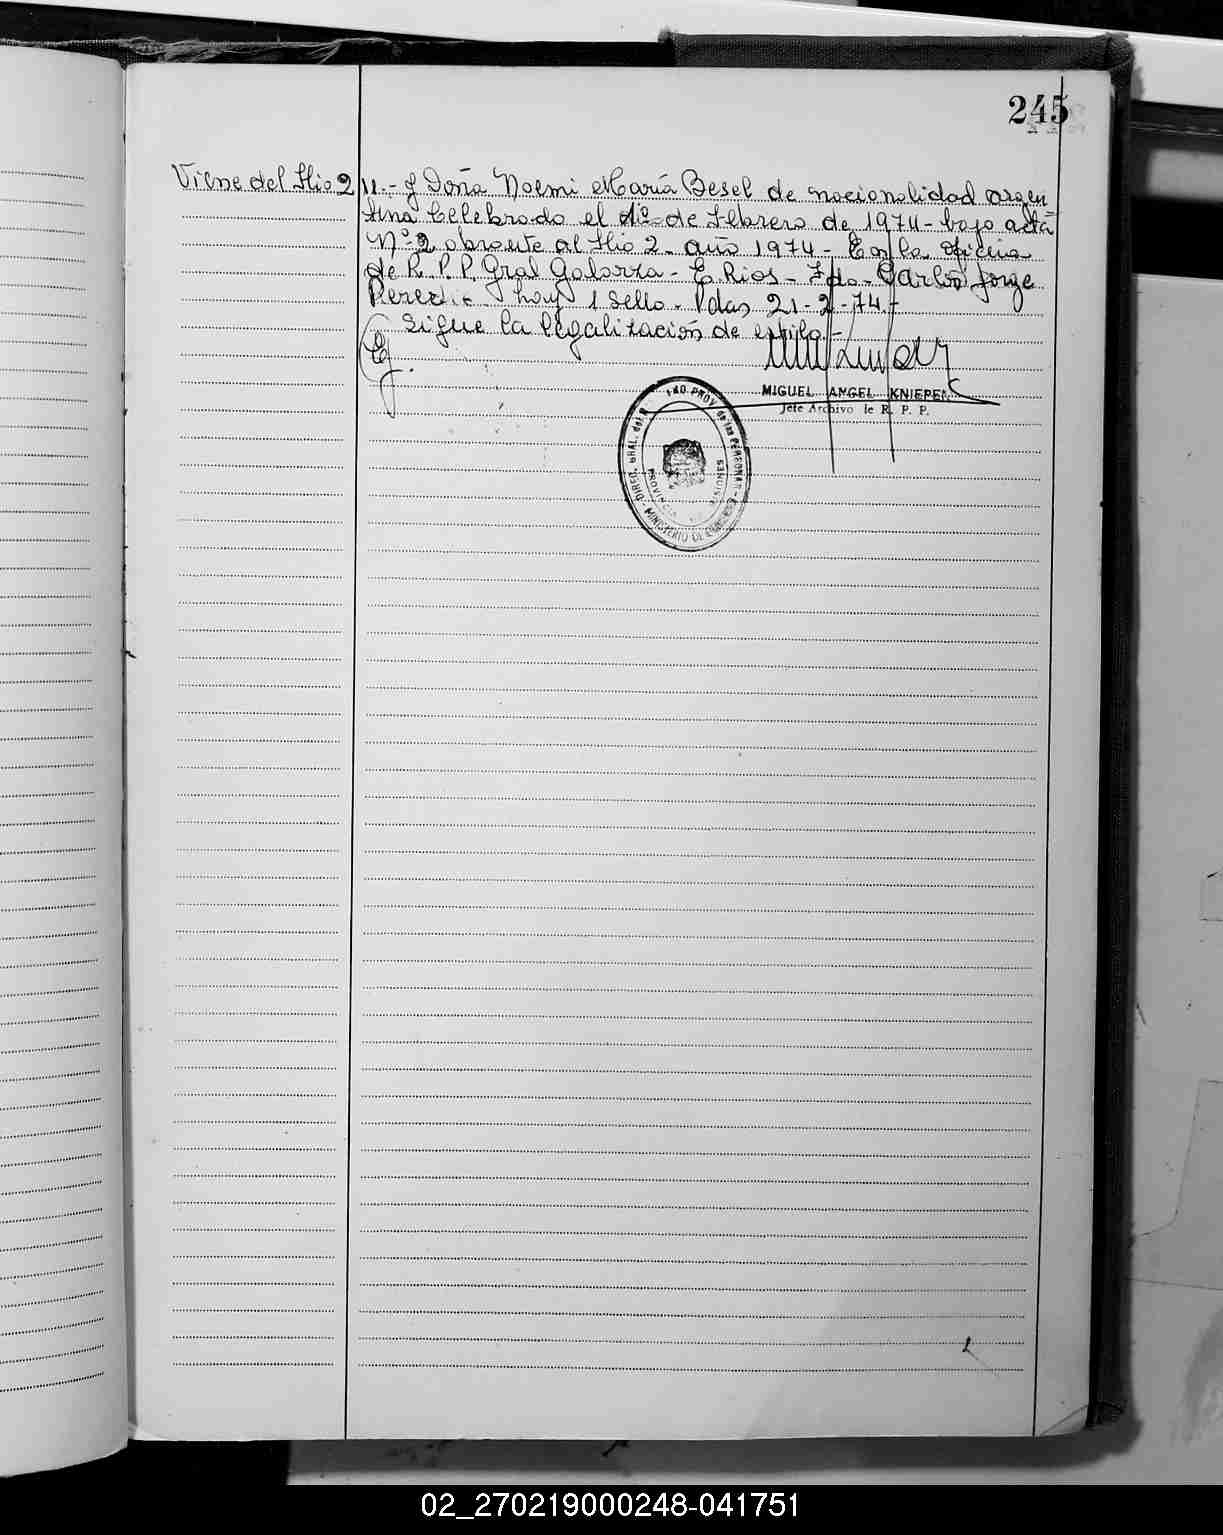 245
Viene del flio 2
11.- y Doña Noemi María Besel de nacionalidad argen
tina celebrado el 1º de Febrero de 1974 - bajo acta
Nº 2 obrante al flio 2 - año 1974 - En la oficina
de R. P. P. Gral Galarza - E. Rios - Fdo - Carlos Jorge
hay 1 sello - Pdas 21-2-74.-
Sigue la legalización de estilo.-
MIGUEL ANGEL KNIEPER
Jefe Archivo de R. P. P.
DIREC. GRAL. del R. PROV. de las PERSONAS
PROVINCIA DE MISIONES
MINISTERIO DE
02_270219000248-041751